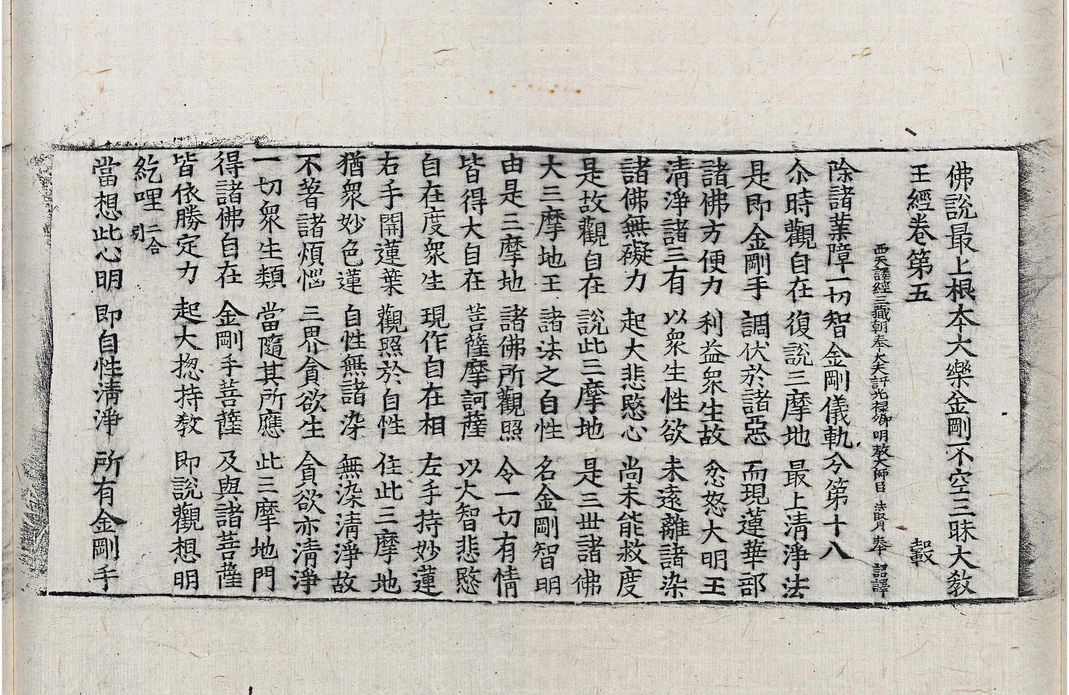 佛說最上根本大樂金剛不空三昧大教
王經卷第五 轂
西天譯經三藏朝奉大夫試光祿卿明教大師臣法賢奉 詔譯
除諸業障一切智金剛儀軌分第十八
尒時觀自在 復說三摩地 最上清淨法
是即金剛手 調伏於諸惡 而現蓮華部
諸佛方便力 利益衆生故 忿怒大明王
清淨諸三有 以衆生性欲 未遠離諸染
諸佛無礙力 起大悲愍心 尚未能救度
是故觀自在 說此三摩地 是三世諸佛
大三摩地王 諸法之自性 名金剛智明
由是三摩地 諸佛所觀照 令一切有情
皆得大自在 菩薩摩訶薩 以大智悲愍
自在度衆生 現作自在相 左手持妙蓮
右手開蓮葉 觀照於自性 住此三摩地
猶衆妙色蓮 自性無諸染 無染清淨故
不著諸煩惱 三界貪欲生 貪欲亦清淨
一切衆生類 當隨其所應 此三摩地門
得諸佛自在 金剛手菩薩 及與諸菩薩
皆依勝定力 起大揔持教 即說觀想明
紇哩二合引
當想此心明 即自性清淨 所有金剛手